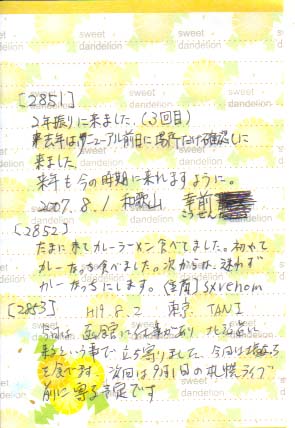 sweet dandelion
[2851]
2年振りに来ました。(3回目)
昨年はリニューアル前日に場所だけ確認しに
来ました。
来年も今の時期に来れますように。
2007.8.1 和歌山 幸前
こうぜん
[2852]
たまに来てカレーラーメン食べてました。初めて
カレーたっち食べました。次からは、迷わず
カレーたっちにします。 sxvenom
[2853]
H19.8.2 東京 TANI
今回は があり 北海道に
来るという事で立ち寄りました。今回は塩ラーメン
を食べます。次回は9月1日の札幌ライブ
前に寄る予定です